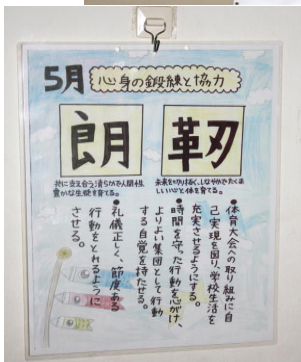 5月
心身の鍛練と協力
朗
靭
共に支え合う清らかで人間性
豊かな生徒を育てる。
未来を切り拓く、しなやかでたくま
しい心と体を育てる。
●体育大会への取り組みに自
己実現を図り、学校生活を
充実させるようにする。
●時間を守った行動を心がけ、
よりよい集団として行動
する自覚を持たせる。
●礼儀正しく、節度ある
行動をとれるように
させる。